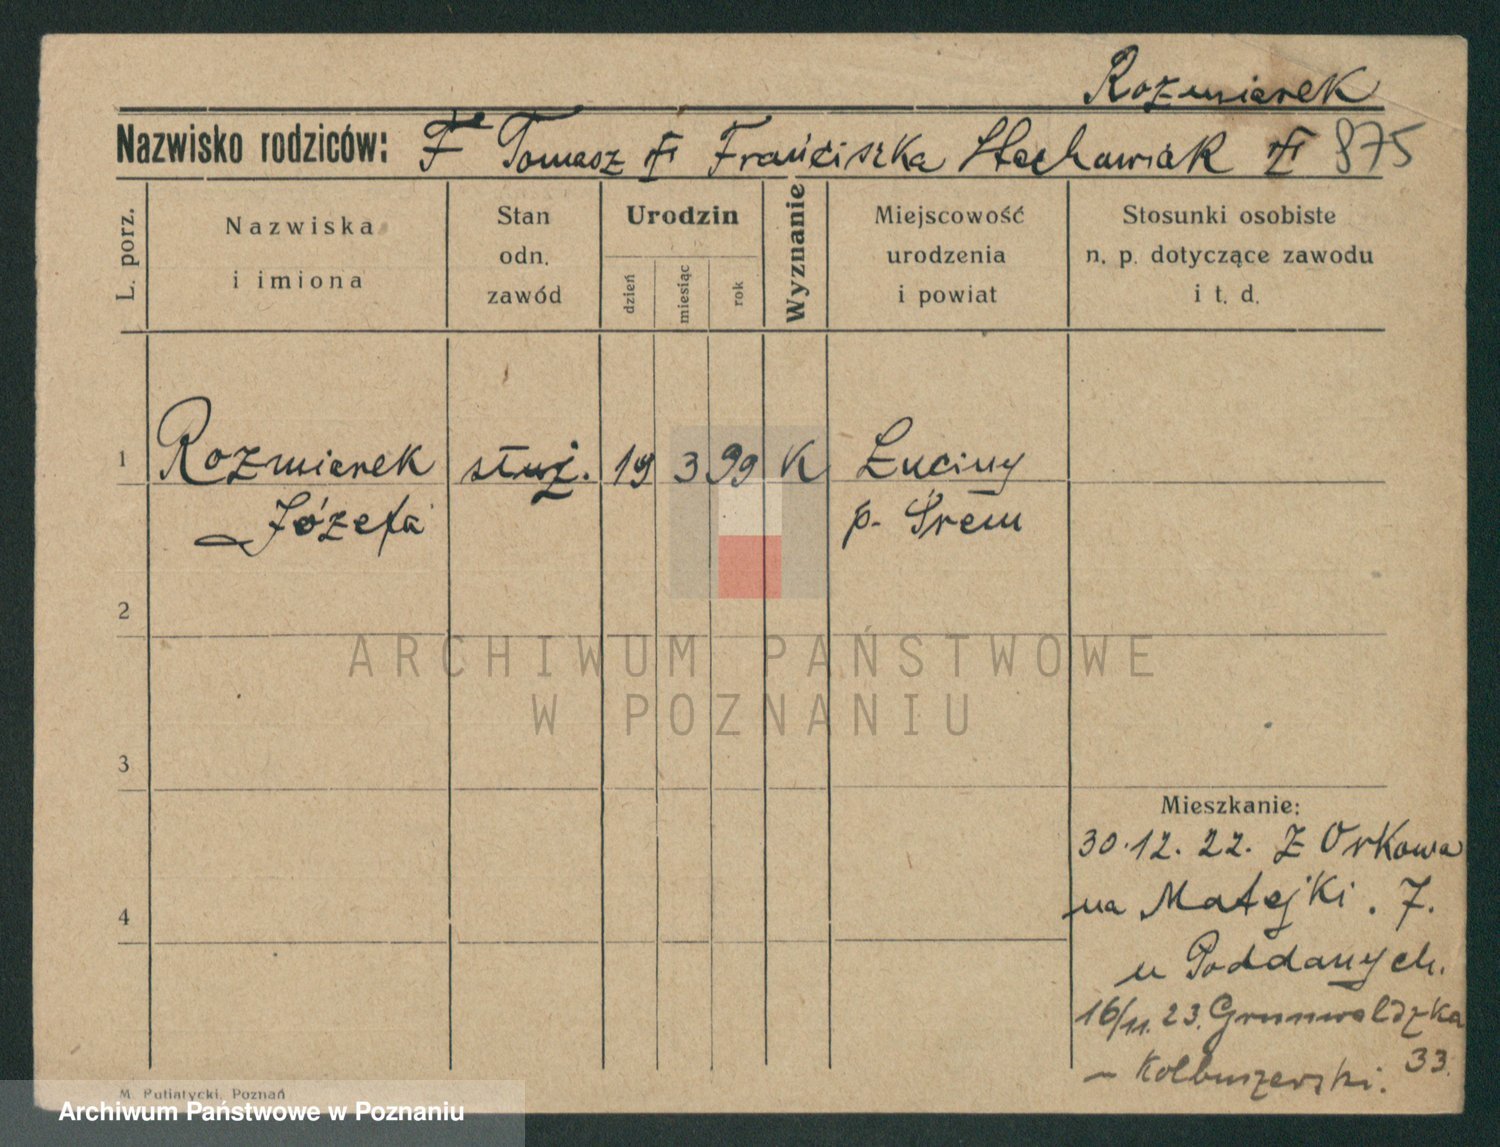 Rozmiarek
Nazwisko rodziców: Tomasz Franciszka Stachowiak 875
L. porz.
Nazwiska
i imiona
Stan
odn.
zawód
Urodzin
dzień
miesiąc
rok
Wyznanie
Miejscowość
urodzenia
i powiat
Stosunki osobiste
n. p. dotyczące zawodu
i t. d.
1 Rozmiarek służ. 19 3 99 K Łuciny
Józefa p. Śrem
2
ARCHIWUM PAŃSTWOWE
W POZNANIU
3
Mieszkanie:
30.12.22. z Orkowa
4 na Matejki. 7.
u Poddanych.
16/11.23. Grunwaldzka
33.
– Kolbuszerski.
M. Putiatycki, Poznań
Archiwum Państwowe w Poznaniu